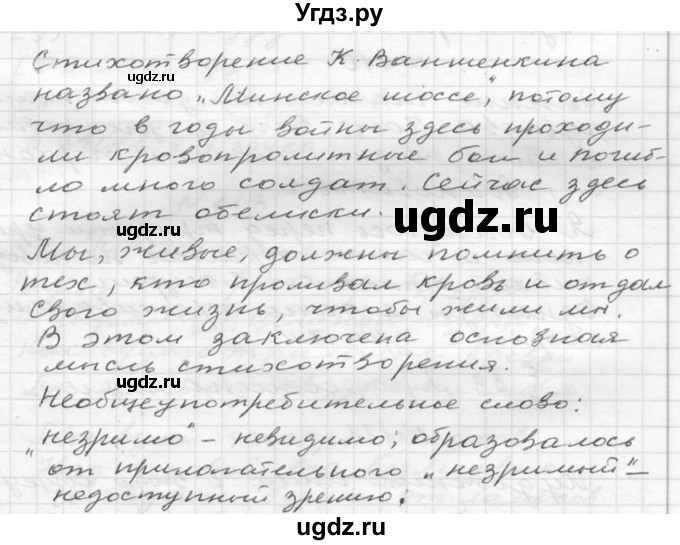 Угдз.ру
Стихотворение К. Ваншенкина
названо „Минское шоссе", потому
что в годы войны здесь проходи-
ли кровопролитные бои и погиб-
ло много солдат. Сейчас здесь
стоят обелиски.
Мы, живые, должны помнить о
тех, кто проливал кровь и отдал
свою жизнь, чтобы жили мы.
В этом заключена основная
мысль стихотворения.
Необщеупотребительное слово:
„незримо" – невидимо; образовалось
от прилагательного „незримый" –
недоступный зрению.
ugdz.ru
ugdz.ru
ugdz.ru
ugdz.ru
ugdz.ru
ugdz.ru
ugdz.ru